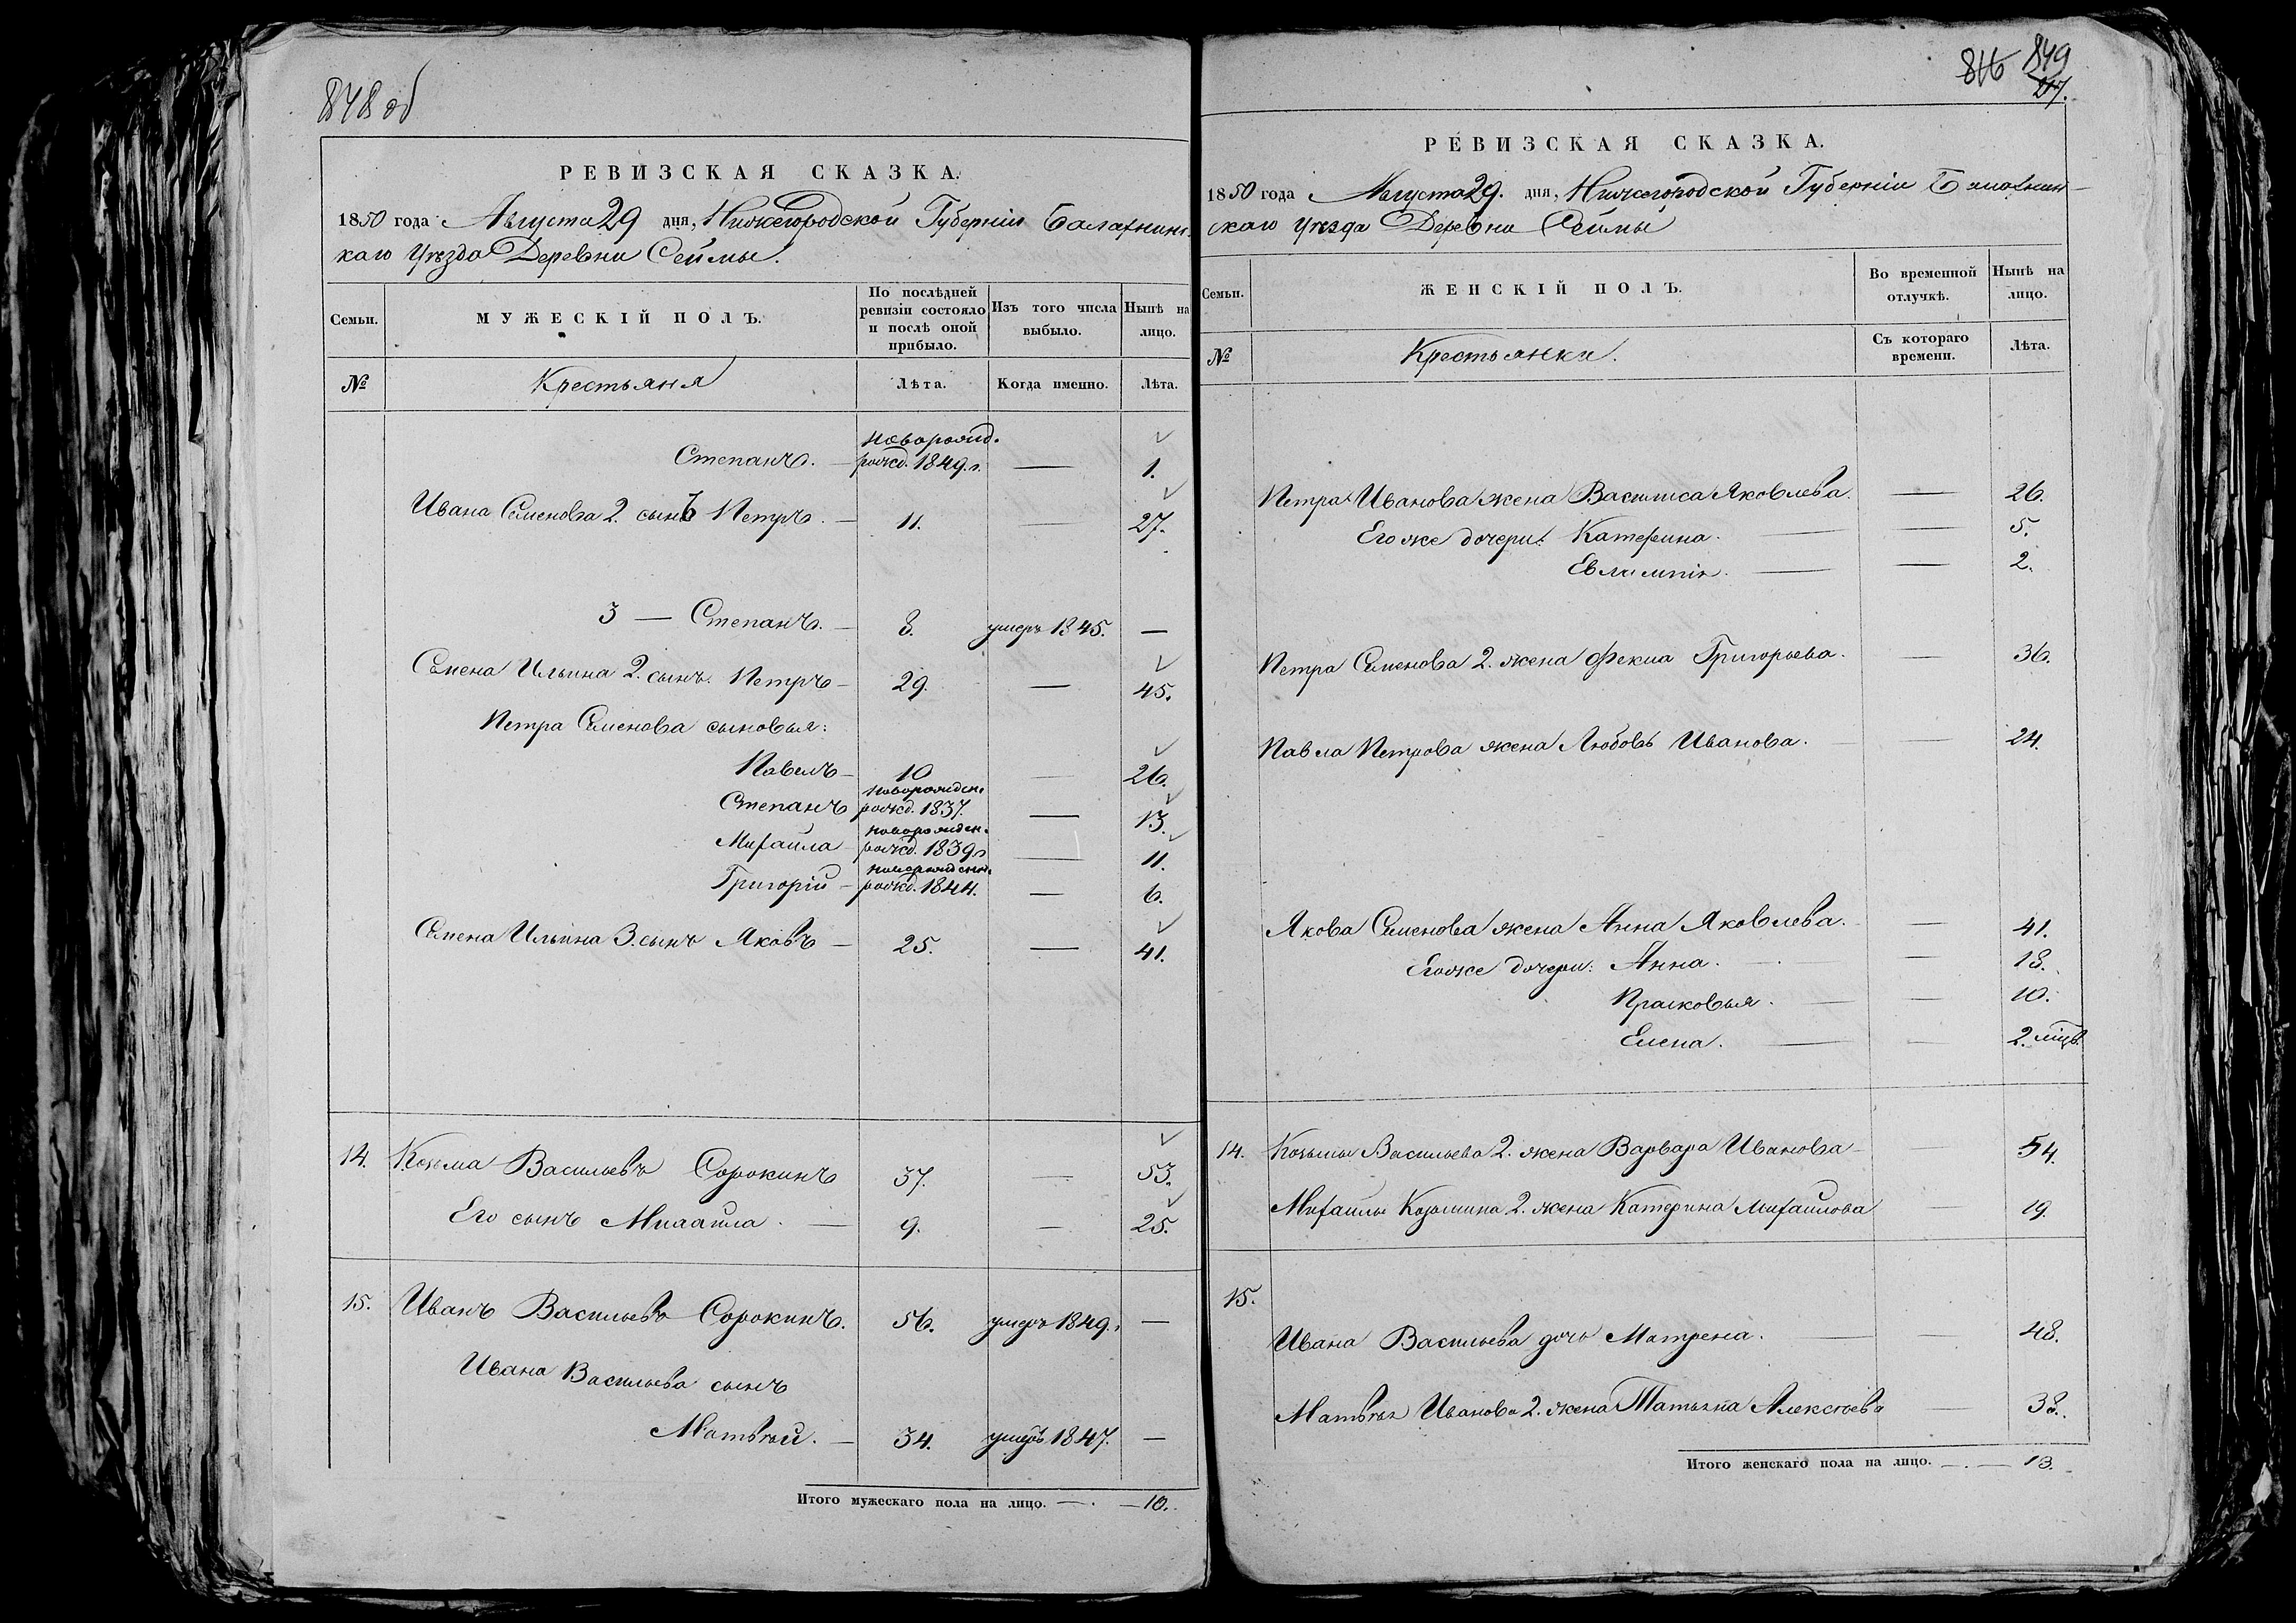 848 об
РЕВИЗСКАЯ СКАЗКА.
1850 года Августа 29 дня, Нижегородской Губерніи Балахнинс
каго Уѣзда Деревни Сеймы.
Семьи.
МУЖЕСКІЙ ПОЛЪ.
По послѣдней ревизіи состояло и послѣ оной прибыло.
Изъ того числа выбыло.
Нынѣ на лицо.
№ Крестьяня Лѣта. Когда именно. Лѣта.
новорожд.
Степанъ. рожд. 1849 г. — 1.
Ивана Семенова 2. сынъ Петръ. — 11. 27.
3 — Степанъ. — 8. умеръ 1845. —
Семена Ильина 2. сынъ Петръ — 29. — 45.
Петра Семенова сыновья:
Павелъ — 10 — 26.
новорожден.
Степанъ рожд. 1837. — 13.
новорожден.
Михаила рожд. 1839 г — 11.
новорожденн.
Григорій — рожд. 1844. — 6.
Семена Ильина 3. сынъ Яковъ — 25. — 41.
14. Козьма Васильевъ Сорокинъ 37. — 53.
Его сынъ Михаила. — 9. — 25.
15. Иванъ Васильевъ Сорокинъ. 56. умеръ 1849. —
Ивана Васильева сынъ
Матвѣй. — 34. умеръ 1847. —
Итого мужескаго пола на лицо. — . — 10.
816 849
217.
РЕВИЗСКАЯ СКАЗКА.
1850 года Августа 29. дня, Нижегородской Губерніи Балахнин-
скаго Уѣзда Деревни Сеймы
Семьи.
ЖЕНСКІЙ ПОЛЪ.
Во временной отлучкѣ.
Нынѣ на лицо.
№ Крестьянки. Съ котораго времени. Лѣта.
Петра Иванова жена Василиса Яковлева. — 26.
Его же дочери: Катерина. — — 5.
Евлампія. — — 2.
Петра Семенова 2. жена Фекла Григорьева. — 36.
Павла Петрова жена Любовь Иванова. — 24.
Якова Семенова жена Анна Яковлева. — 41.
Его же дочери: Анна. — — 18.
Прасковья. — — 10.
Елена. — — 2. мцв.
14. Козьмы Васильева 2. жена Варвара Иванова — 54.
Михаилы Козьмина 2. жена Катерина Михаилова — 19.
15.
Ивана Васильева дочь Матрена. — 48.
Матвѣя Иванова 2. жена Татьяна Алексѣева — 38.
Итого женскаго пола на лицо. — . — 13.